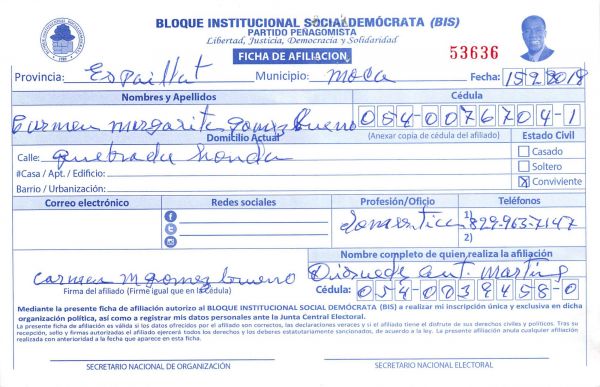 BLOQUE INSTITUCIONAL SOCIALDEMÓCRATA (BIS)
PARTIDO PEÑAGOMISTA
Libertad, Justicia, Democracia y Solidaridad
FICHA DE AFILIACIÓN
53636
Provincia: Espaillat Municipio: Moca Fecha: 15 2 2018
Nombres y Apellidos Cédula
Carmen Margarita Gomez Bueno 054-0076704-1
Domicilio Actual (Anexar copia de cédula del afiliado) Estado Civil
Calle: Quebrada Honda Casado
#Casa / Apt. / Edificio: Soltero
Barrio / Urbanización: X Conviviente
Correo electrónico Redes sociales Profesión/Oficio Teléfonos
Domestica 1) 829-963-7147
2)
Nombre completo de quien realiza la afiliación
Carmen M gomez bueno Diosuede Ant. Martinez
Firma del afiliado (Firme igual que en la Cédula) Cédula: 054-0039458-0
Mediante la presente ficha de afiliación autorizo al BLOQUE INSTITUCIONAL SOCIAL DEMÓCRATA (BIS) a realizar mi inscripción única y exclusiva en dicha
organización política, así como a registrar mis datos personales ante la Junta Central Electoral.
La presente ficha de afiliación es válida si los datos ofrecidos por el afiliado son correctos, las declaraciones veraces y si el afiliado tiene el disfrute de sus derechos civiles y políticos. Tras su
recepción, sello y firmas autorizadas el afiliado ejercerá todos los derechos y los deberes estatutariamente sancionados, de acuerdo a la ley. La presente afiliación anula cualquier afiliación
realizada con anterioridad a la fecha que aparece en esta ficha.
SECRETARIO NACIONAL DE ORGANIZACIÓN SECRETARIO NACIONAL ELECTORAL